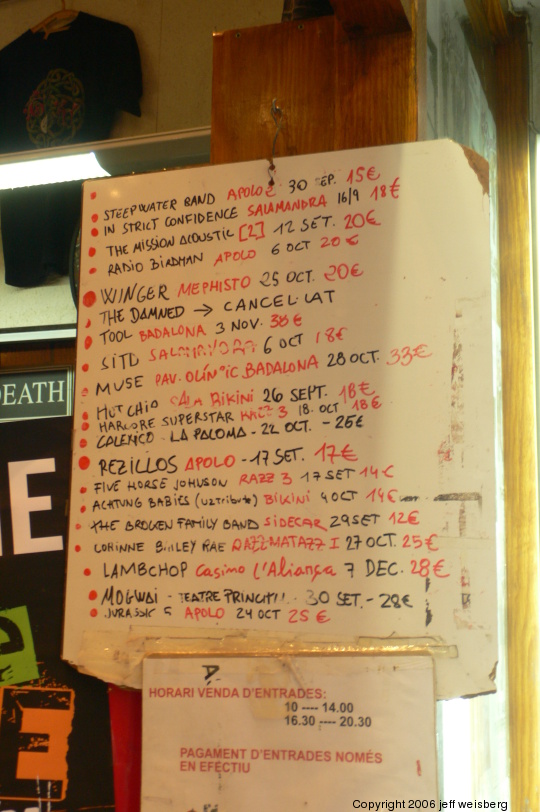 STEEPWATER BAND APOLO 2 30 SEP. 15€
IN STRICT CONFIDENCE SALAMANDRA 16/9 18€
THE MISSION ACOUSTIC [2] 12 SET. 20€
RADIO BIRDMAN APOLO 6 OCT 20€
WINGER MEPHISTO 25 OCT. 20€
THE DAMNED → CANCEL·LAT
TOOL BADALONA 3 NOV. 38€
SITD SALAMANDRA 6 OCT 18€
MUSE PAV. OLÍMPIC BADALONA 28 OCT. 33€
SALA BIKINI 26 SEPT. 18€
HARCORE SUPERSTAR RAZZ 3 18 OCT 18€
CALEXICO - LA PALOMA - 22 OCT. - 26€
REZILLOS APOLO - 17 SET. 17€
FIVE HORSE JOHNSON RAZZ 3 17 SET 14€
ACHTUNG BABIES (U2 tribute) BIKINI 4 OCT 14€
THE BROKEN FAMILY BAND SIDECAR 29 SET 12€
CORINNE BAILEY RAE RAZZMATAZZ I 27 OCT. 25€
LAMBCHOP Casino l'Aliança 7 DEC. 28€
MOGWAI - TEATRE PRINCIPAL - 30 SET. - 28€
JURASSIC 5 APOLO 24 OCT 25€
EATH
HORARI VENDA D'ENTRADES:
10 ---- 14.00
16.30 ---- 20.30
PAGAMENT D'ENTRADES NOMÉS
EN EFECTIU
Copyright 2006 jeff weisberg